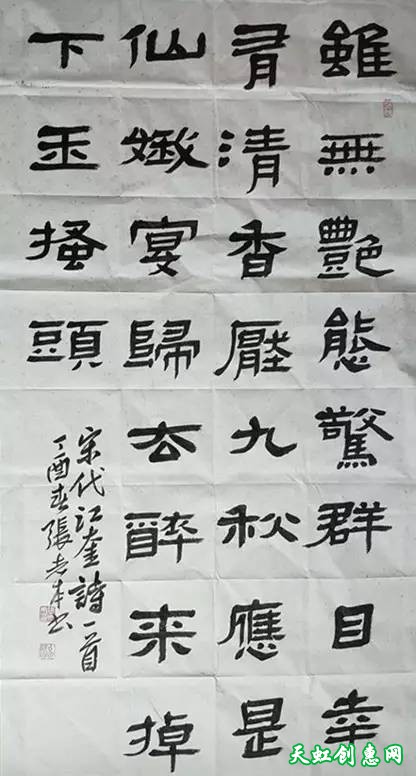 雖無艷態驚群目幸
有清香壓九秋應是
仙娥宴歸去醉來掉
下玉搔頭
宋代江奎詩一首
丁酉春張志本书
天虹创惠网